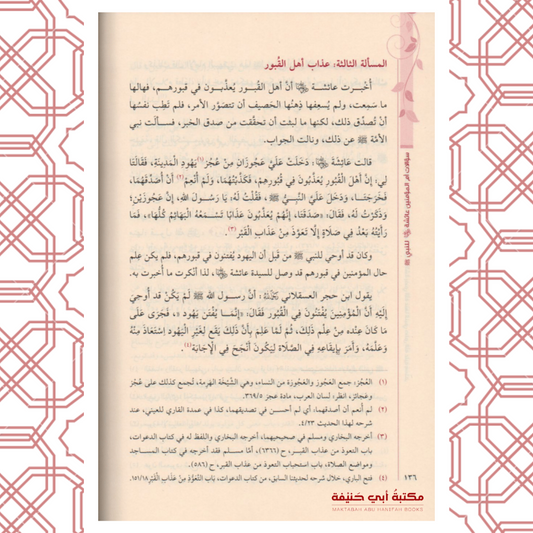 المسألة الثالثة: عذاب أهل القُبور
أُخبرت عائشة ﷺ أنَّ أهل القُبور يُعذَّبون في قبورهم، فهالها
ما سَمِعت، ولم يُسعِفها ذِهنُها الحَصيف أن تتصوَّر الأمر، فلم تَطِب نفسُها
أنْ تُصدِّق ذلك، لكنها ما لبثت أن تحقَّقت من صدق الخبر، فسألت نبي
الأمَّة ﷺ عن ذلك، ونالت الجواب.
قالت عَائِشَةَ: دَخَلَتْ عَلَيَّ عَجُوزَانِ مِنْ عُجُزِ(١) يَهُودِ الْمَدِينَةِ، فَقَالَتَا
لِي: إِنَّ أَهْلَ الْقُبُورِ يُعَذَّبُونَ فِي قُبُورِهِمْ، فَكَذَّبْتُهُمَا، وَلَمْ أُنْعِمْ(٢) أَنْ أُصَدِّقَهُمَا،
فَخَرَجَتَا، وَدَخَلَ عَلَيَّ النَّبِيُّ ﷺ، فَقُلْتُ لَهُ: يَا رَسُولَ اللهِ، إِنَّ عَجُوزَيْنِ؛
وَذَكَرْتُ لَهُ، فَقَالَ: «صَدَقَتَا، إِنَّهُمْ يُعَذَّبُونَ عَذَابًا تَسْمَعُهُ الْبَهَائِمُ كُلُّهَا»، فَمَا
رَأَيْتُهُ بَعْدُ فِي صَلَاةٍ إِلَّا تَعَوَّذَ مِنْ عَذَابِ الْقَبْرِ(٣).
وكان قد أوحي للنبي ﷺ من قبل أن اليهود يُفتنون في قبورهم، فلم يكن عِلم
حال المؤمنين في قبورهم قد وصل للسيدة عائشة، لذا أنكرت ما أُخبرت به.
يقول ابن حجر العسقلاني: أنَّ رسول الله ﷺ لَمْ يَكُنْ قَدْ أُوحِيَ
إِلَيْهِ أَنَّ الْمُؤْمِنِينَ يُفْتَنُونَ فِي الْقُبُورِ فَقَالَ: «إِنَّمَا يُفْتَنُ يَهُودُ»، فَجَرَى عَلَى
مَا كَانَ عِنْدَه مِنْ عِلْمِ ذَلِكَ، ثُمَّ لَمَّا عَلِمَ بِأَنَّ ذَلِكَ يَقَع لِغَيْرِ الْيَهُودِ اِسْتَعَاذَ مِنْهُ
وَعَلَّمَهُ، وَأَمَرَ بِإِيقَاعِهِ فِي الصَّلَاة لِيَكُونَ أَنْجَحَ فِي الْإِجَابَة(٤).
(١) العُجُز، جمع العَجُوز والعَجُوزة من النساء، وهي الشَّيْخَة الهَرِمة، تُجمع كذلك على عُجْز
وعجائز، انظر: لسان العرب، مادة عجز ٣٦٩/٥.
(٢) لم أُنعم أن أصدقهما، أي لم أحسن في تصديقهما، كذا في عمدة القاري للعيني، عند
شرحه لهذا الحديث ٤/٢٣.
(٣) أخرجه البخاري ومسلم في صحيحيهما، أخرجه البخاري واللفظ له في كتاب الدعوات،
باب التعوذ من عذاب القبر، ح (٦٣٦٦)، أمَّا مسلم فقد أخرجه في كتاب المساجد
ومواضع الصلاة، باب استحباب التعوذ من عذاب القبر، ح (٥٨٦)
(٤) فتح الباري، خلال شرحه لحديثنا السابق، من كتاب الدعوات، باب التَّعَوُّذ مِنْ عَذَابِ الْقَبْرِ ١٥١/١٨.
سؤالات أم المؤمنين عائشة للنبي ﷺ
١٣٦
مكتبة أبي حنيفة
MAKTABAH ABU HANIFAH BOOKS